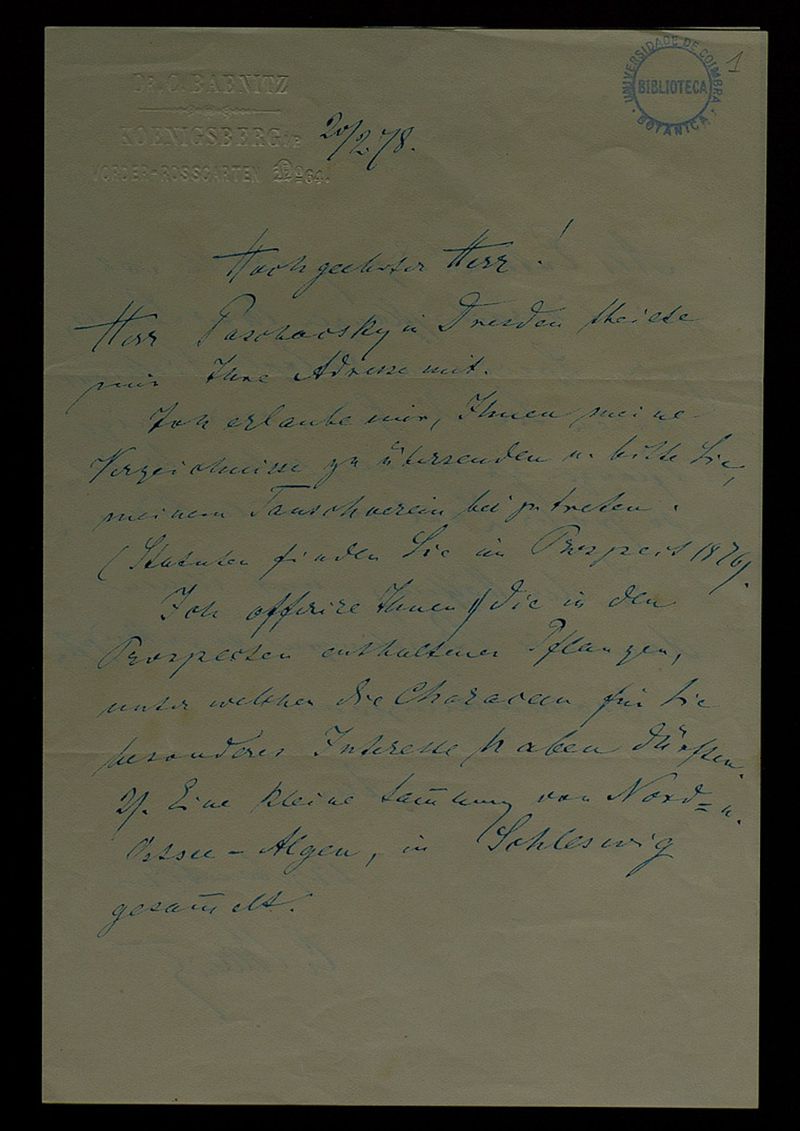 DR. C. BAENITZ
KOENIGSBERG i/P.
VORDER-ROSSGARTEN No 64.
20/2. 78.
UNIVERSIDADE DE COIMBRA
BIBLIOTECA
BOTANICA
1
Hochgeehrter Herr!
Herr in Dresden theilte
mir Ihre Adresse mit.
Ich erlaube mir, Ihnen meine
Verzeichnisse zu übersenden u. bitte Sie,
meinem Tauschverein beizutreten.
(Statuten finden Sie im Prospect 1876).
Ich offerire Ihnen 1) die in den
Prospecten enthaltenen Pflanzen,
unter welchen die Characeen für Sie
besonderes Interesse haben dürften.
2). Eine kleine Sam̄lung von Nord= u.
Ostsee-Algen, in Schleswig
gesam̄elt.